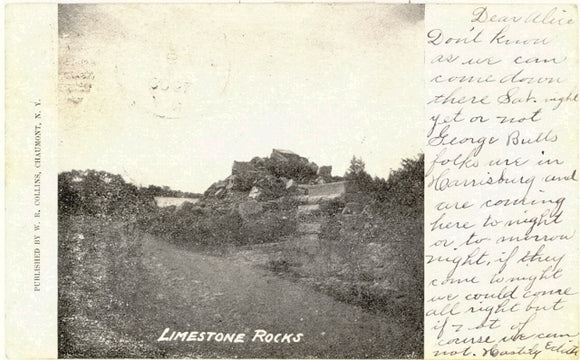 PUBLISHED BY W. R. COLLINS, CHAUMONT, N. Y.
LIMESTONE ROCKS
Dear Alice
Don't know
as we can
come down
there Sat. night
yet or not
George Butts
folks are in
Harrisburg and
are coming
here to night
or to morrow
night, if they
come to night
we could come
all right but
if not of
course we can
not. Hastily Edith